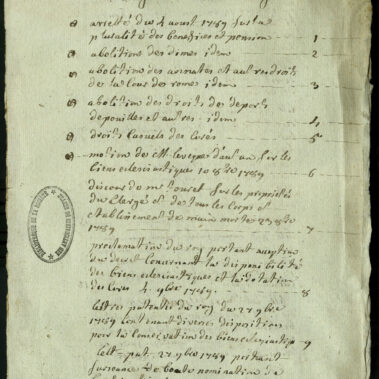 arretté du 4 aoust 1789 sur la
pluralité des benefices et pension 1
abolition des dimes idem 2
abolition des annates et autres droits
de la Cour de rome idem 3
abolition des droits de deports
depouilles et autres idem 4
droits Casuels des Curés 5
motion de M. leveque d'autun sur les
biens eclesiastiques 10 8bre 1789 6
discours de mr touret sur les proprietés
du Clergé et de tous les Corps et
etablissement de main morte 23 8bre
1789 7
proclamation du roy portant
du decret Concernant la disponibilité
des biens eclesiastiques et la dotation
des Cures 4 9bre 1789 8
lettres patentes du roy du 27 9bre
1789 Contenant diverses disposition
pour la Conservation des biens 9
lett. pat. 27 9bre 1789 portant
surseance de toute nomination de